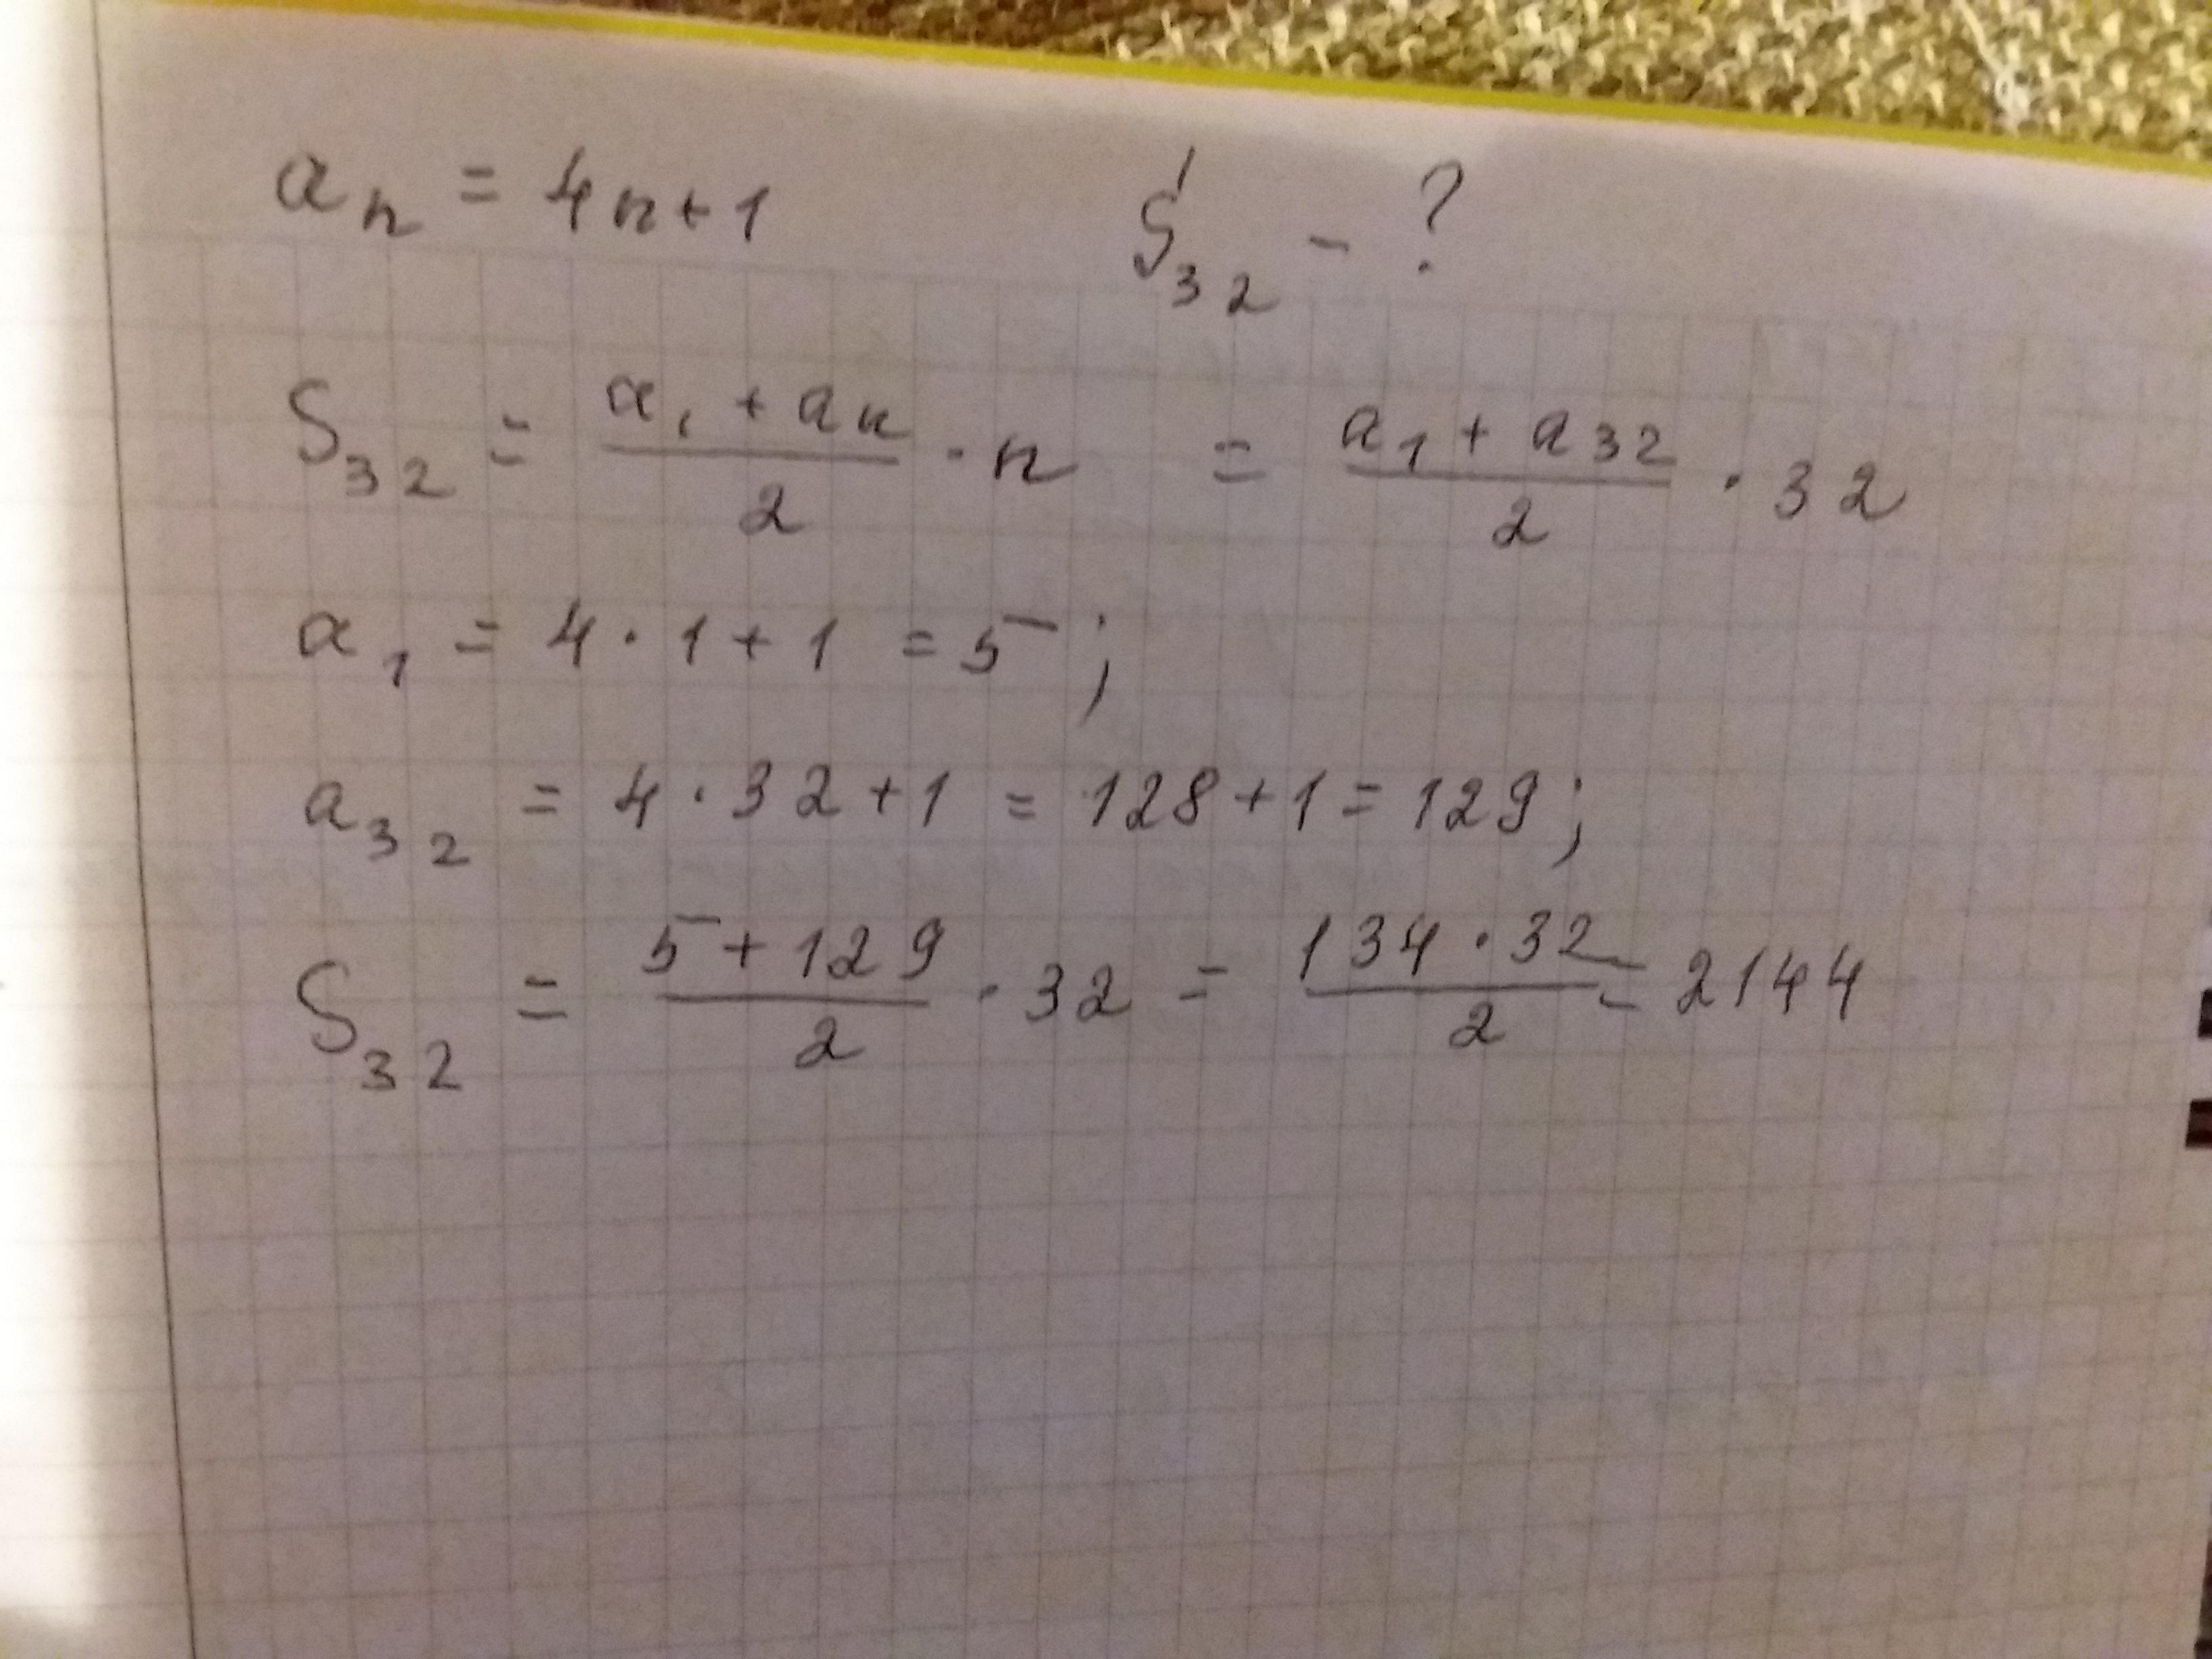 aₙ = 4n+1 S₃₂ - ?
S₃₂ = (a₁ + aₙ)/2 · n = (a₁ + a₃₂)/2 · 32
a₁ = 4 · 1 + 1 = 5;
a₃₂ = 4 · 32 + 1 = 128 + 1 = 129;
S₃₂ = (5 + 129)/2 · 32 = (134 · 32)/2 = 2144